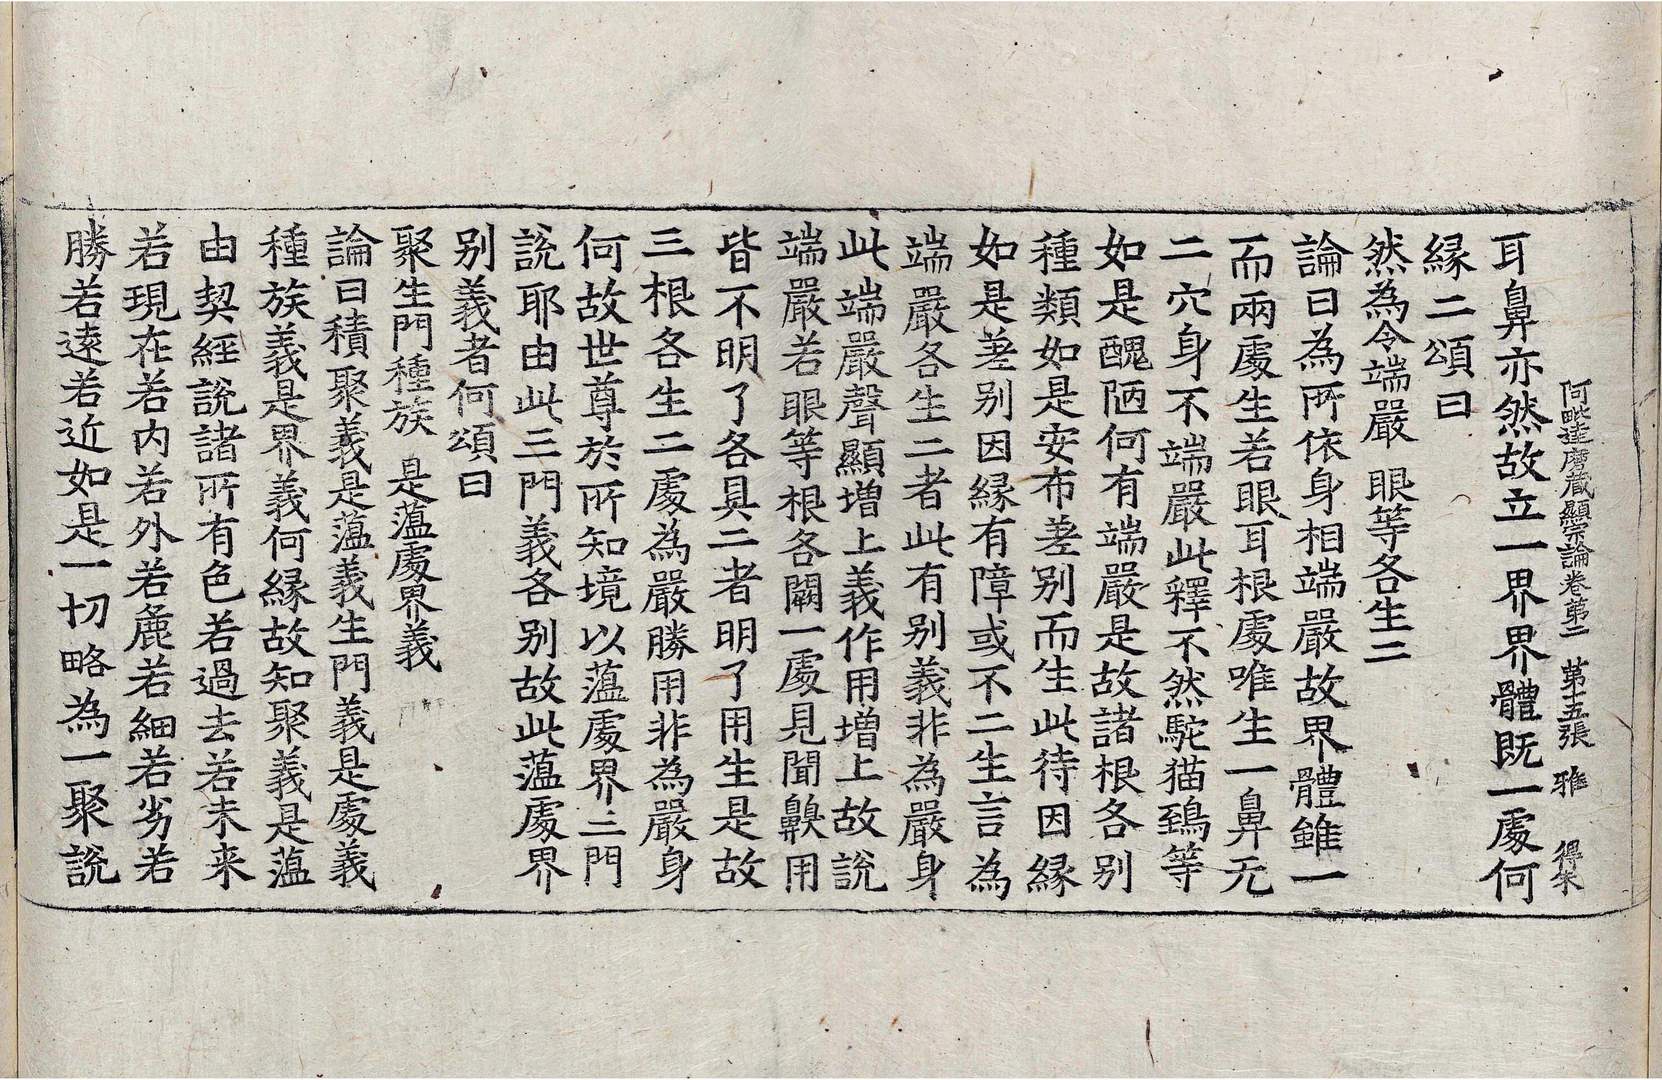 阿毗達磨藏顯宗論卷第二　第十五張　雅　得朱
耳鼻亦然故立一界界體既一處何
緣二頌曰
然為令端嚴　眼等各生二
論曰為所依身相端嚴故界體雖一
而兩處生若眼耳根處唯生一鼻无
二穴身不端嚴此釋不然駝猫鵄等
如是醜陋何有端嚴是故諸根各別
種類如是安布差別而生此待因緣
如是差別因緣有障或不二生言為
端嚴各生二者此有別義非為嚴身
此端嚴聲顯增上義作用增上故說
端嚴若眼等根各闕一處見聞齅用
皆不明了各具二者明了用生是故
三根各生二處為嚴勝用非為嚴身
何故世尊於所知境以薀處界三門
說耶由此三門義各別故此薀處界
別義者何頌曰
聚生門種族　是薀處界義
論曰積聚義是薀義生門義是處義
種族義是界義何緣故知聚義是薀
由契經說諸所有色若過去若未来
若現在若內若外若麁若細若劣若
勝若遠若近如是一切略為一聚說